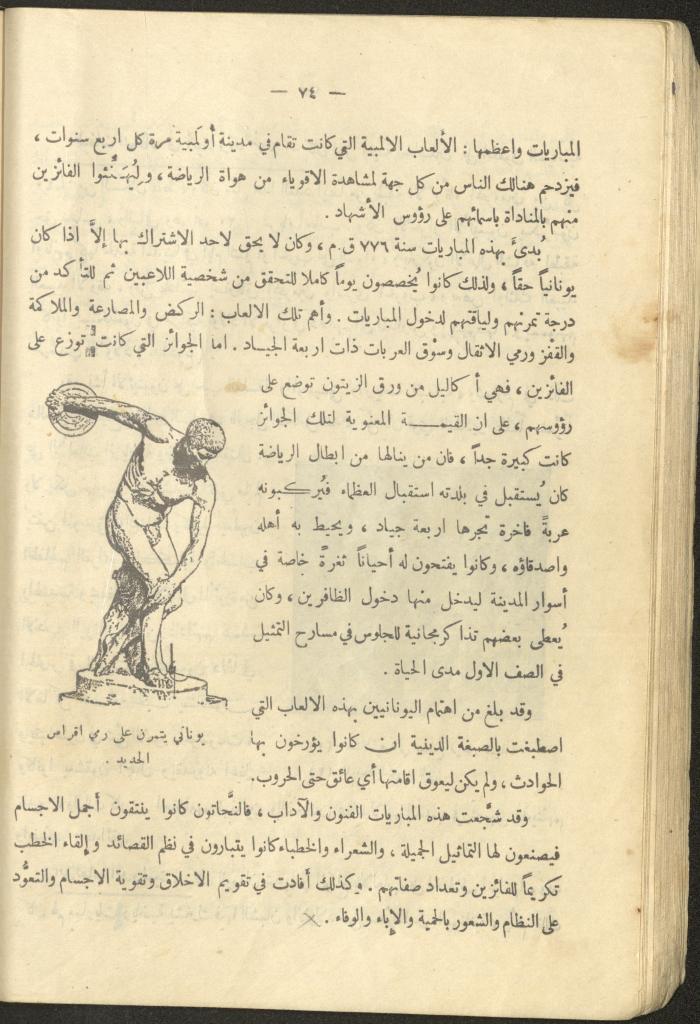 — ٧٤ —
المباريات واعظمها : الألعاب الالمبية التي كانت تقام في مدينة أولمبية مرة كل اربع سنوات ،
فيزدحم هنالك الناس من كل جهة لمشاهدة الاقوياء من هواة الرياضة ، وليُهَنِّئوا الفائزين
منهم بالمناداة باسمائهم على رؤوس الأشهاد .
بُدئَ بهذه المباريات سنة ٧٧٦ ق.م ، وكان لا يحق لاحد الاشتراك بها إلاَّ اذا كان
يونانياً حقاً ، ولذلك كانوا يُخصصون يوماً كاملا للتحقق من شخصية اللاعبين ثم للتأكد من
درجة تمرنهم ولياقتهم لدخول المباريات . وأهم تلك الالعاب : الركض والمصارعة والملاكمة
والقفْز ورمي الاثقال وسوْق العربات ذات اربعة الجياد . اما الجوائز التي كانت توزع على
الفائزين ، فهي أكاليل من ورق الزيتون توضع على
رؤوسهم ، على ان القيمة المعنوية لتلك الجوائز
كانت كبيرة جداً ، فان من ينالها من ابطال الرياضة
كان يُستقبل في بلدته استقبال العظماء فيُركبونه
عربةً فاخرة تجرها اربعة جياد ، ويحيط به أهله
واصدقاؤه ، وكانوا يفتحون له أحياناً ثغرةً خاصة في
أسوار المدينة ليدخل منها دخول الظافرين ، وكان
يُعطى بعضهم تذاكر مجانية للجلوس في مسارح التمثيل
في الصف الاول مدى الحياة .
وقد بلغ من اهتمام اليونانيين بهذه الالعاب التي
اصطبغت بالصبغة الدينية ان كانوا يؤرخون بها
الحوادث ، ولم يكن ليعوق اقامتها أي عائق حتى الحروب .
يوناني يتمرن على رمي اقراس
الحديد .
وقد شجَّعت هذه المباريات الفنون والآداب ، فالنحَّاتون كانوا ينتقون أجمل الاجسام
فيصنعون لها التماثيل الجميلة ، والشعراء والخطباء كانوا يتبارون في نظم القصائد وإلقاء الخطب
تكريماً للفائزين وتعداد صفاتهم . وكذلك أفادت في تقويم الاخلاق وتقوية الاجسام والتعوُّد
على النظام والشعور بالحمية والإباء والوفاء .